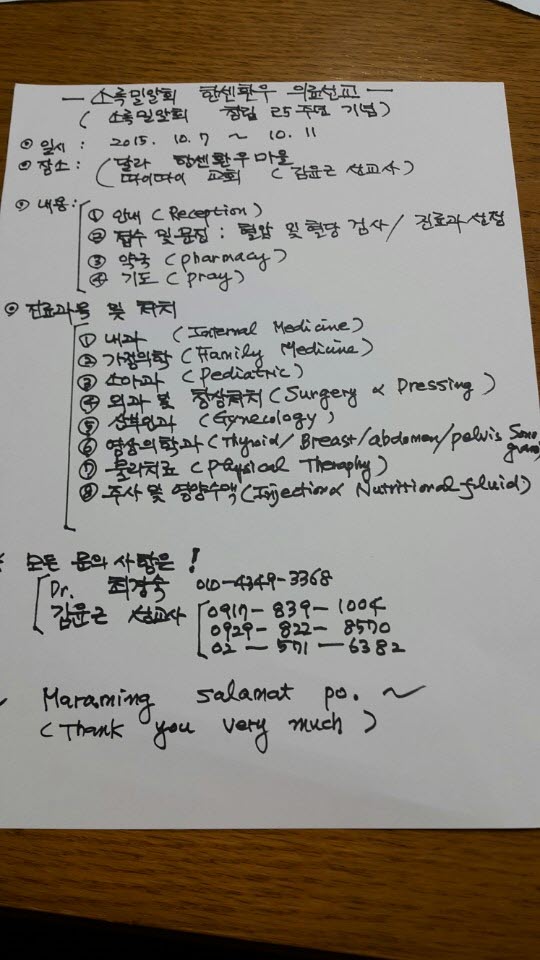 — 소록밀알회 한센환우 의료선교 —
( 소록밀알회 창립 25주년 기념 )
◎ 일시 : 2015. 10. 7 ~ 10. 11
◎ 장소 : ( 딸라 한센환우마을
따이따이 교회 ( 김윤근 선교사 )
◎ 내용 :
① 안내 ( Reception )
② 접수 및 문진 : 혈압 및 혈당 검사 / 진료과 선정
③ 약국 ( pharmacy )
④ 기도 ( pray )
◎ 진료과목 및 처치
① 내과 ( Internal Medicine )
② 가정의학 ( Family Medicine )
③ 소아과 ( Pediatric )
④ 외과 및 창상처치 ( Surgery & Dressing )
⑤ 산부인과 ( Gynecology )
⑥ 영상의학과 ( Thyroid / Breast / abdomen / pelvis Sono
gram )
⑦ 물리치료 ( Physical Theraphy )
⑧ 주사 및 영양수액 ( Injection & Nutritional fluid )
※ 모든 문의 사항은 !
Dr. 최경숙 010-4349-3368
김윤근 선교사 0917 - 839 - 1004
0929 - 822 - 8570
02 - 571 - 6382
~ Maraming salamat po. ~
( Thank you very much )